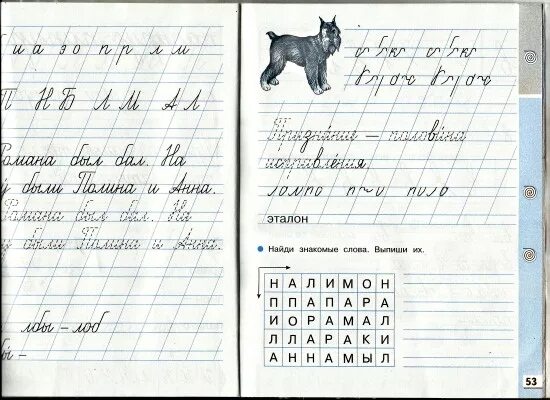 и а з о п р л м
П Н Б Л М А Л
Романа был бал. На
у были Полина и Анна.
Романа был бал. На
у были Полина и Анна.
лбы – лоб
Призна́ние — полови́на
исправле́ния.
эталон
Найди знакомые слова. Выпиши их.
Н А Л И М О Н
П П А П А Р А
И О Р А М А Л
Л Л А Р А К И
А Н Н А М Ы Л
53